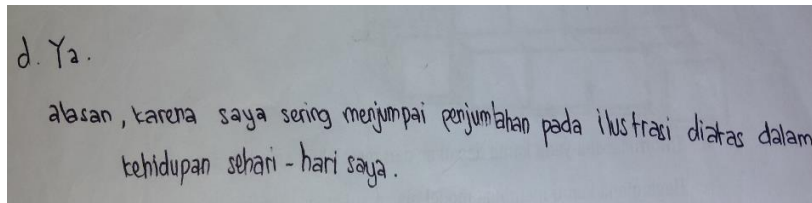 d. Ya.
alasan, karena saya sering menjumpai penjumlahan pada ilustrasi diatas dalam
kehidupan sehari-hari saya.